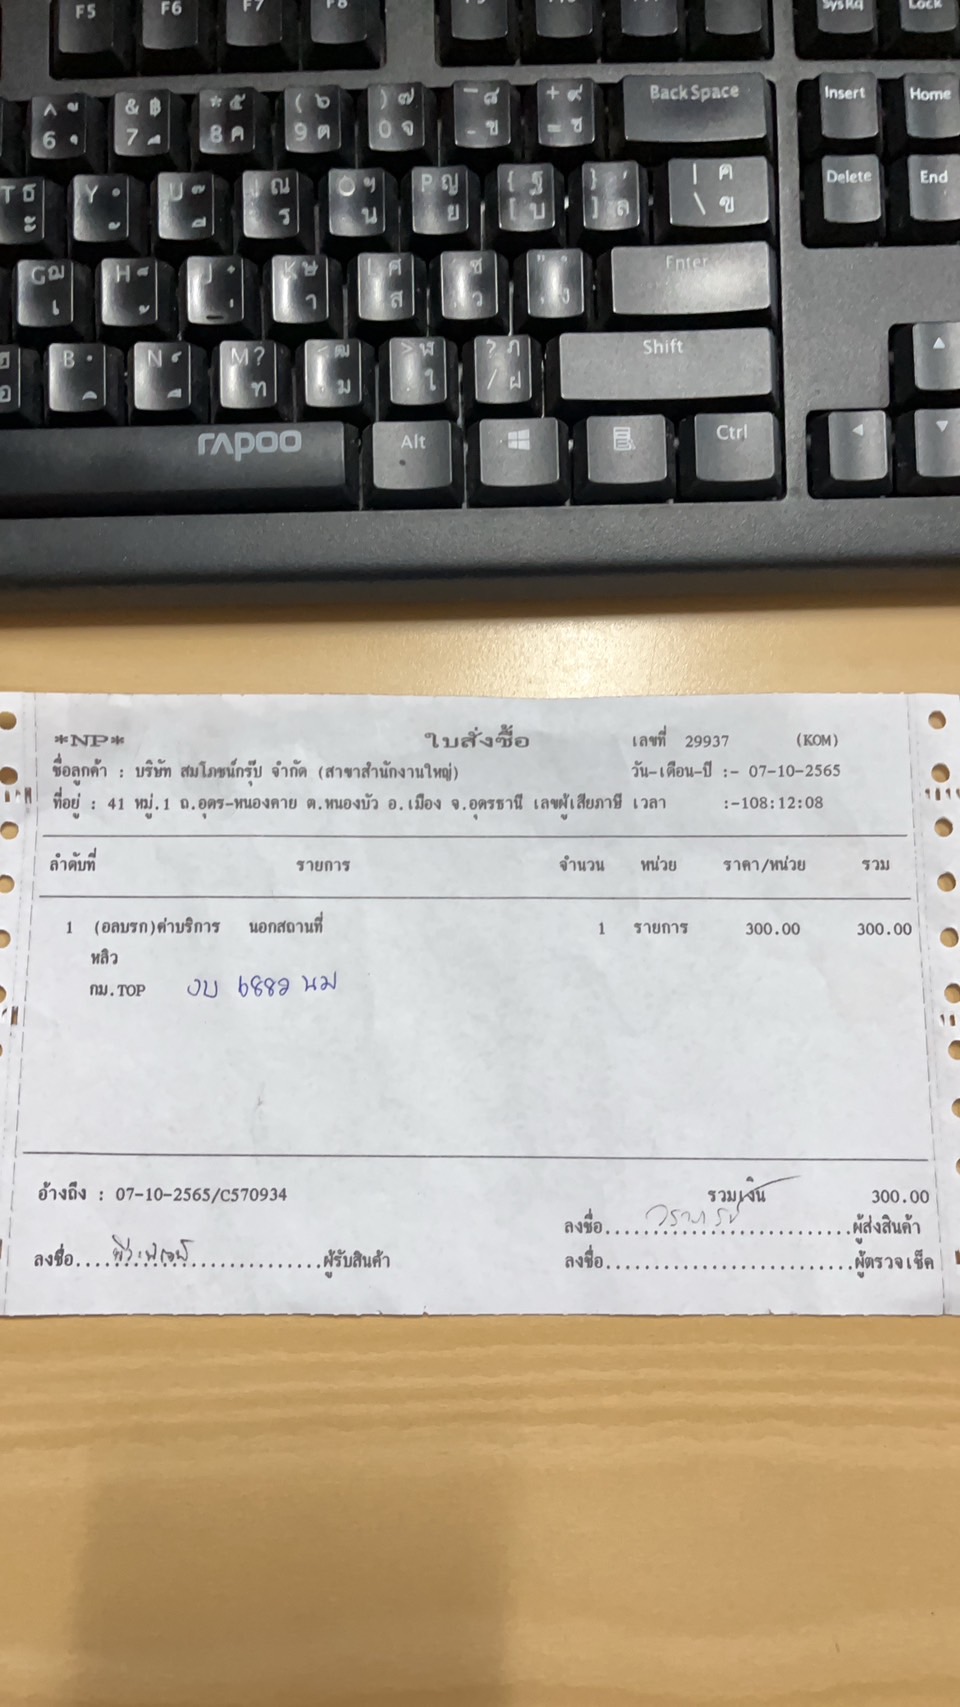 F5 F6 F7 F8 SysRq Lock
^ 6 & ฿ 7 * ๕ 8 ค ( ๖ 9 ต ) ๗ 0 จ - ๘ - ข + ๙ = ช BackSpace Insert Home
T ธ Y U ณ ร O ฯ น P ญ ย { ฐ [ บ } , ] ล | ฅ \ ฃ Delete End
G ฌ เ H J K ษ า ศ ส ซ ว " ง Enter
อ B N M ? ท ฒ ม > ฬ ใ ? ฦ / ฝ Shift
rapoo Alt Ctrl
*NP* ใบสั่งซื้อ เลขที่ 29937 (KOM)
ชื่อลูกค้า : บริษัท สมโภชน์กรุ๊ป จำกัด (สาขาสำนักงานใหญ่) วัน-เดือน-ปี :- 07-10-2565
ที่อยู่ : 41 หมู่.1 ถ.อุดร-หนองคาย ต.หนองบัว อ.เมือง จ.อุดรธานี เลขผู้เสียภาษี เวลา :-108:12:08
ลำดับที่ รายการ จำนวน หน่วย ราคา/หน่วย รวม
1 (อลบรก)ค่าบริการ นอกสถานที่ 1 รายการ 300.00 300.00
หลิว
กม.TOP นม
อ้างถึง : 07-10-2565/C570934 รวมเงิน 300.00
ลงชื่อ..............................ผู้ส่งสินค้า
ลงชื่อ..............................ผู้รับสินค้า ลงชื่อ..............................ผู้ตรวจเช็ค